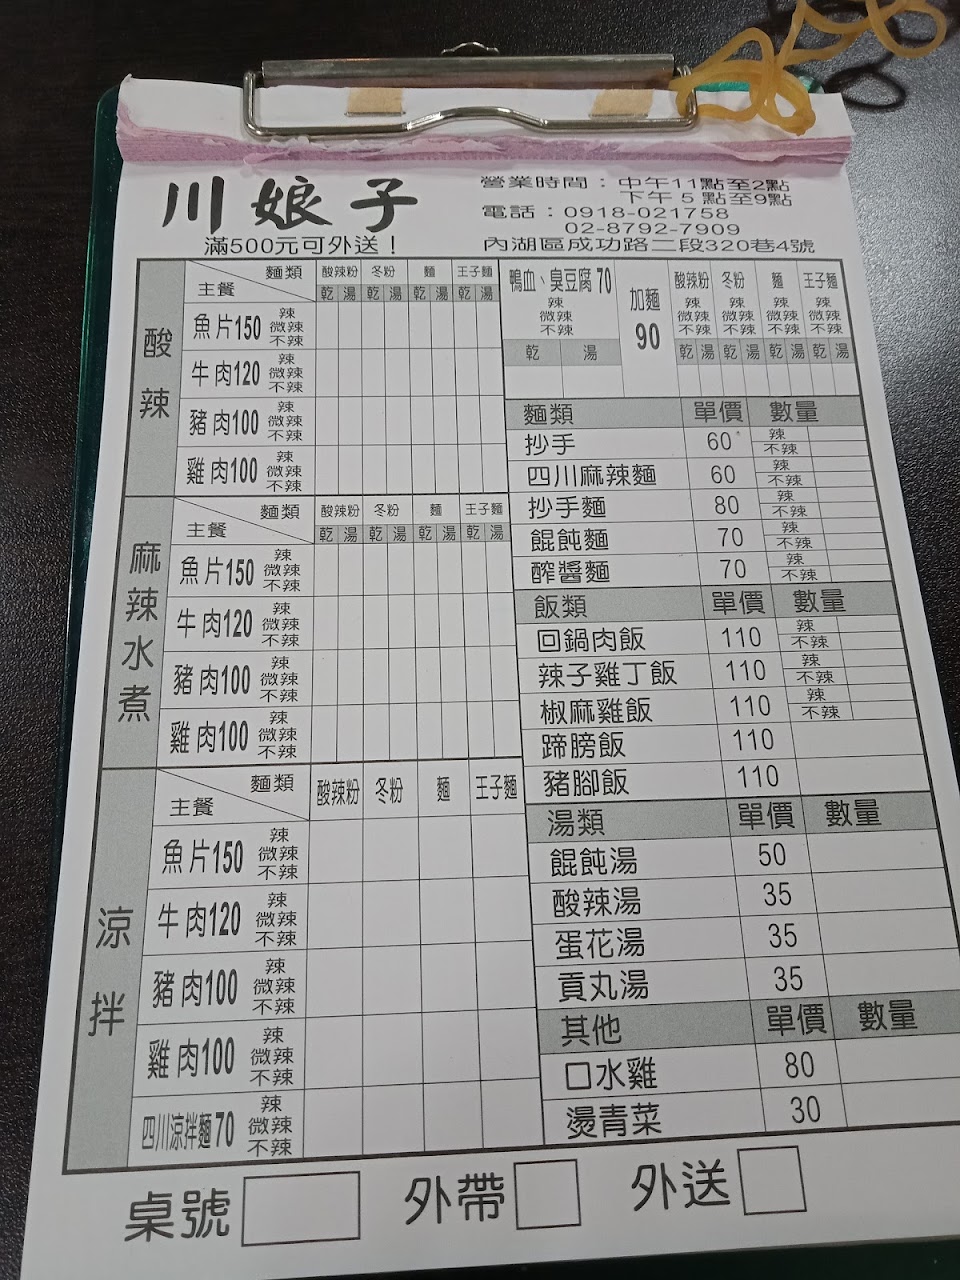 川娘子
滿500元可外送！
營業時間：中午11點至2點
下午5點至9點
電話：0918-021758
02-8792-7909
內湖區成功路二段320巷4號
酸辣
麵類
主餐
酸辣粉 冬粉 麵 王子麵
乾 湯 乾 湯 乾 湯 乾 湯
魚片150 辣 微辣 不辣
牛肉120 辣 微辣 不辣
豬肉100 辣 微辣 不辣
雞肉100 辣 微辣 不辣
麻辣水煮
麵類
主餐
酸辣粉 冬粉 麵 王子麵
乾 湯 乾 湯 乾 湯 乾 湯
魚片150 辣 微辣 不辣
牛肉120 辣 微辣 不辣
豬肉100 辣 微辣 不辣
雞肉100 辣 微辣 不辣
涼拌
麵類
主餐
酸辣粉 冬粉 麵 王子麵
魚片150 辣 微辣 不辣
牛肉120 辣 微辣 不辣
豬肉100 辣 微辣 不辣
雞肉100 辣 微辣 不辣
四川涼拌麵70 辣 微辣 不辣
鴨血、臭豆腐 70
辣
微辣
不辣
乾 湯
加麵
90
酸辣粉 冬粉 麵 王子麵
辣 辣 辣 辣
微辣 微辣 微辣 微辣
不辣 不辣 不辣 不辣
乾 湯 乾 湯 乾 湯 乾 湯
麵類 單價 數量
抄手 60 辣 不辣
四川麻辣麵 60 辣 不辣
抄手麵 80 辣 不辣
餛飩麵 70 辣 不辣
醡醬麵 70 辣 不辣
飯類 單價 數量
回鍋肉飯 110 辣 不辣
辣子雞丁飯 110 辣 不辣
椒麻雞飯 110 辣 不辣
蹄膀飯 110
豬腳飯 110
湯類 單價 數量
餛飩湯 50
酸辣湯 35
蛋花湯 35
貢丸湯 35
其他 單價 數量
口水雞 80
燙青菜 30
桌號 外帶 外送